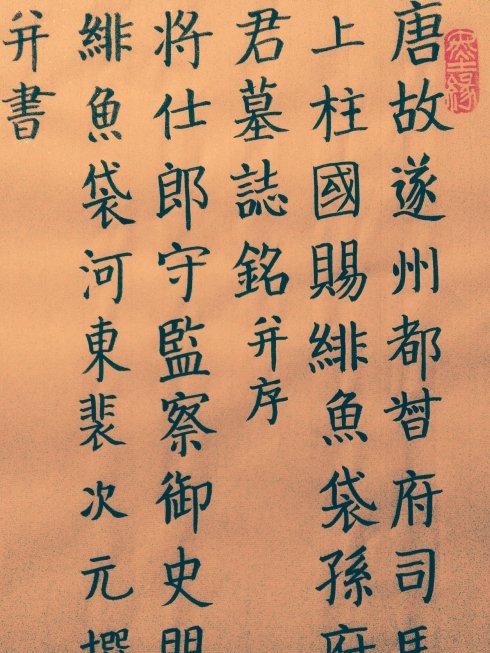 唐故遂州都督府司馬
上柱國賜緋魚袋孫府
君墓誌銘并序
將仕郎守監察御史
緋魚袋河東裴次元撰
并書